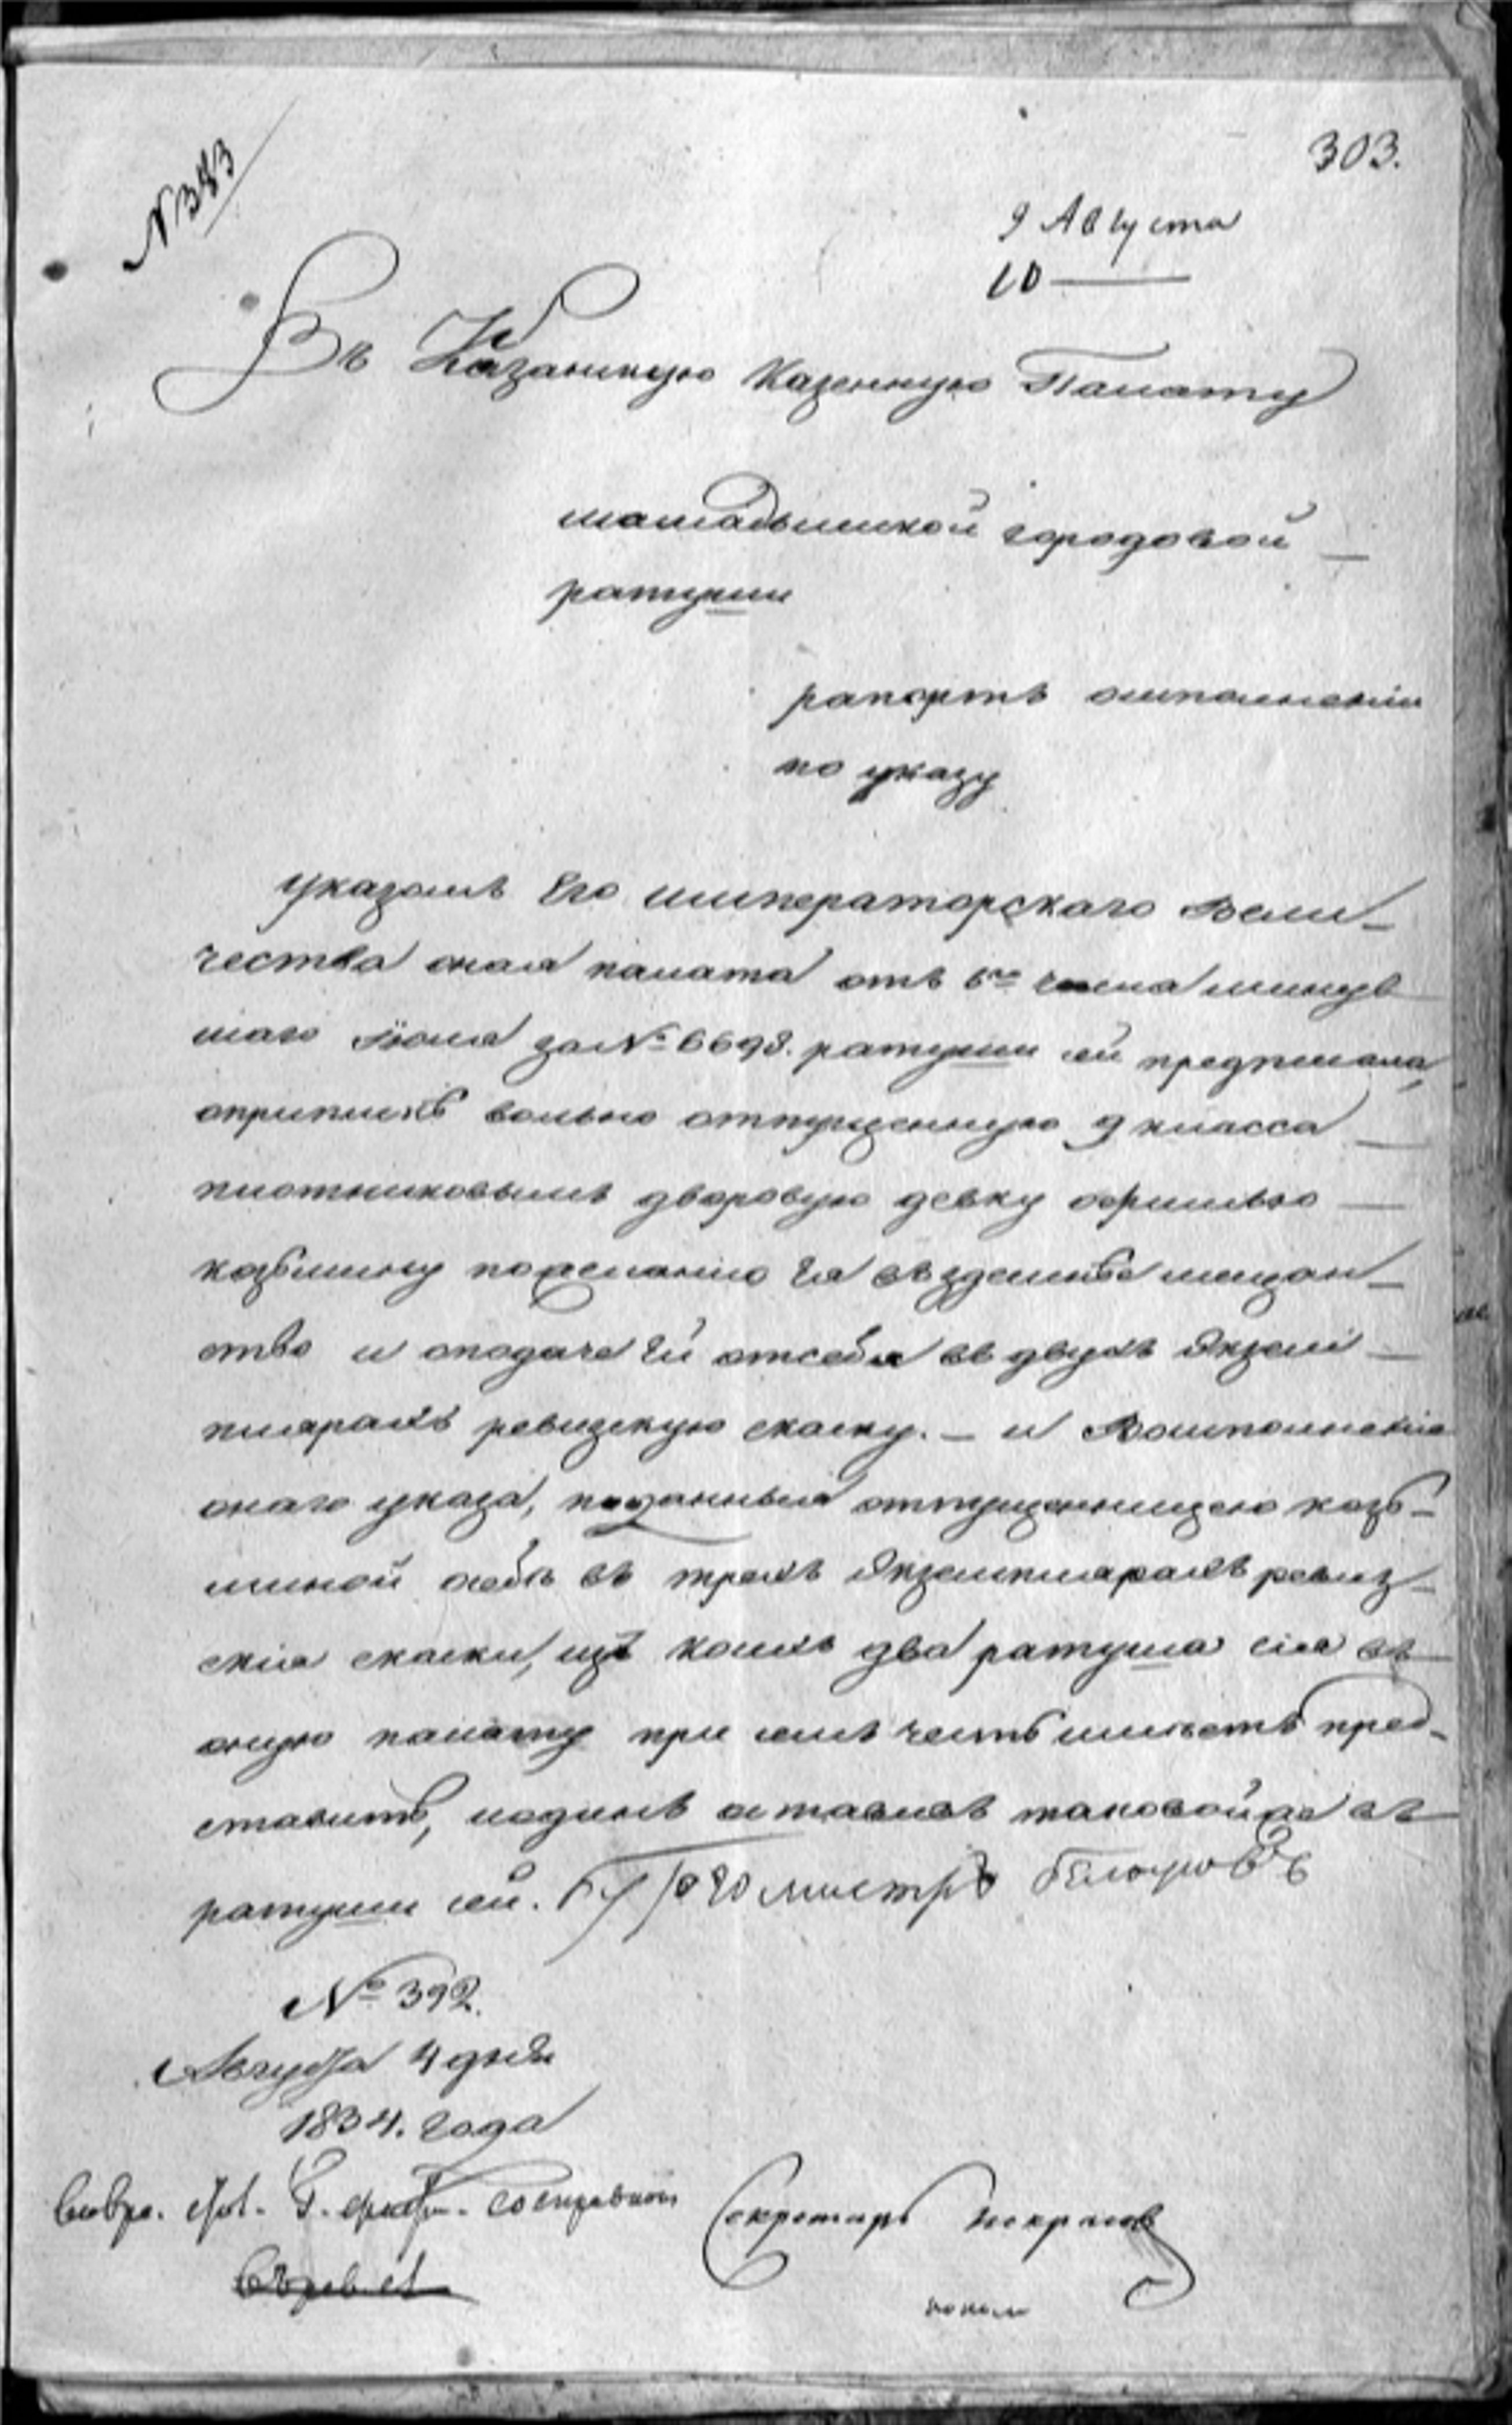 303.
N 383
9 Августа
10 —
Въ Казанскую Казенную Палату
мамадышской городовой —
ратуши
рапортъ оисполнении
по указу
Указомъ Его императорскаго Вели-
чества оная палата отъ 6го числа минув
шаго Июля за № 6698. ратуши сей предписала,
оприписке вольно отпущенную 9 класса —
плотниковымъ дворовую девку офимью —
козьмину пожеланию Ея въздешнее мещан-
ство и оподаче Ей отсебя въ двухъ Экзем-
плярахъ ревизскую скаску. — и Воисполнение
онаго указа, поданныя отпущенницею козь-
миной осебе въ трехъ Экземплярахъ ревиз-
ския скаски, изъ коихъ два ратуша сия въ
оную палату при семъ честь имеетъ пред-
ставить, иодинъ оставивъ таковойже въ
ратуши сей. Бургомистръ
№ 392.
Августа 4 дня
1834. Года
Секретарь Некрасов